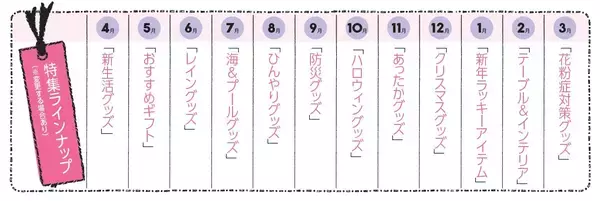 特集ラインナップ
(※変更する場合あり)
4月
「新生活グッズ」
5月
「おすすめギフト」
6月
「レイングッズ」
7月
「海&プールグッズ」
8月
「ひんやりグッズ」
9月
「防災グッズ」
10月
「ハロウィングッズ」
11月
「あったかグッズ」
12月
「クリスマスグッズ」
1月
「新年ラッキーアイテム」
2月
「テーブル&インテリア」
3月
「花粉症対策グッズ」